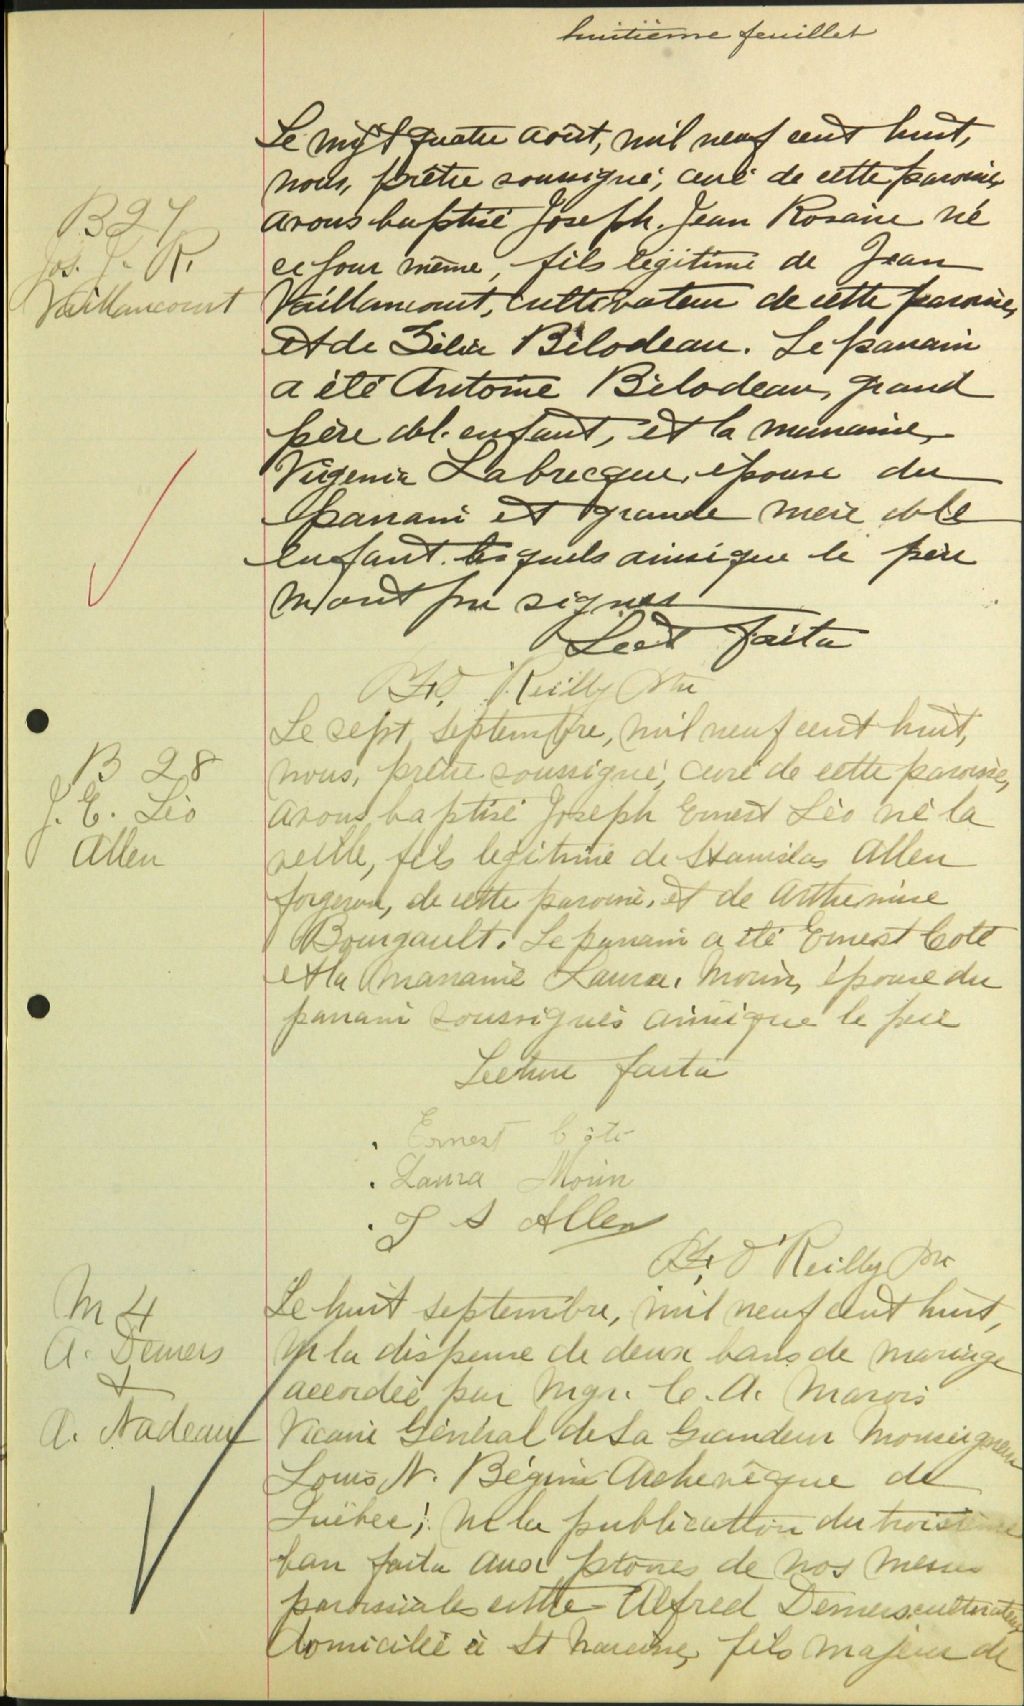 huitième feuillet
B 27
Jos. J. R.
Vaillancourt
Le vingt quatre août, mil neuf cent huit,
nous, prêtre soussigné, curé de cette paroisse
avons baptisé Joseph. Jean Rosaire né
ce jour même, fils légitime de Jean
Vaillancourt, cultivateur de cette paroisse,
et de Zélia Bilodeau. Le parrain
a été Antoine Bilodeau, grand
père de l'enfant, et la marraine,
Virgenia Labrecque, épouse du
parrain et grande mère de l'
enfant lesquels ainsi que le père
n'ont pu signer
Lect faite
O'Reilly Ptre
B 28
J. E. Léo
Allen
Le sept septembre, mil neuf cent huit,
nous, prêtre soussigné, curé de cette paroisse,
avons baptisé Joseph Ernest Léo né la
veille, fils légitime de Stanislas Allen
forgeron, de cette paroisse, et de Arthemise
Bourgault. Le parrain a été Ernest Coté
et la marraine Laura Morin, épouse du
parrain soussignés ainsi que le père
Lecture faite
Ernest Côté
Laura Morin
J S Allen
O'Reilly Ptre
M 4
A. Demers
&
A. Nadeau
Le huit septembre, mil neuf cent huit,
vu la dispense de deux bans de mariage
accordée par Mgr. C. A. Marois
Vicaire Général de Sa Grandeur Monseigneur
Louis N. Bégin Archevêque de
Québec; vu la publication du troisième
ban faite aux prônes de nos messes
paroissiales entre Alfred Demers cultivateur,
domicilié à St Narcisse, fils majeur de